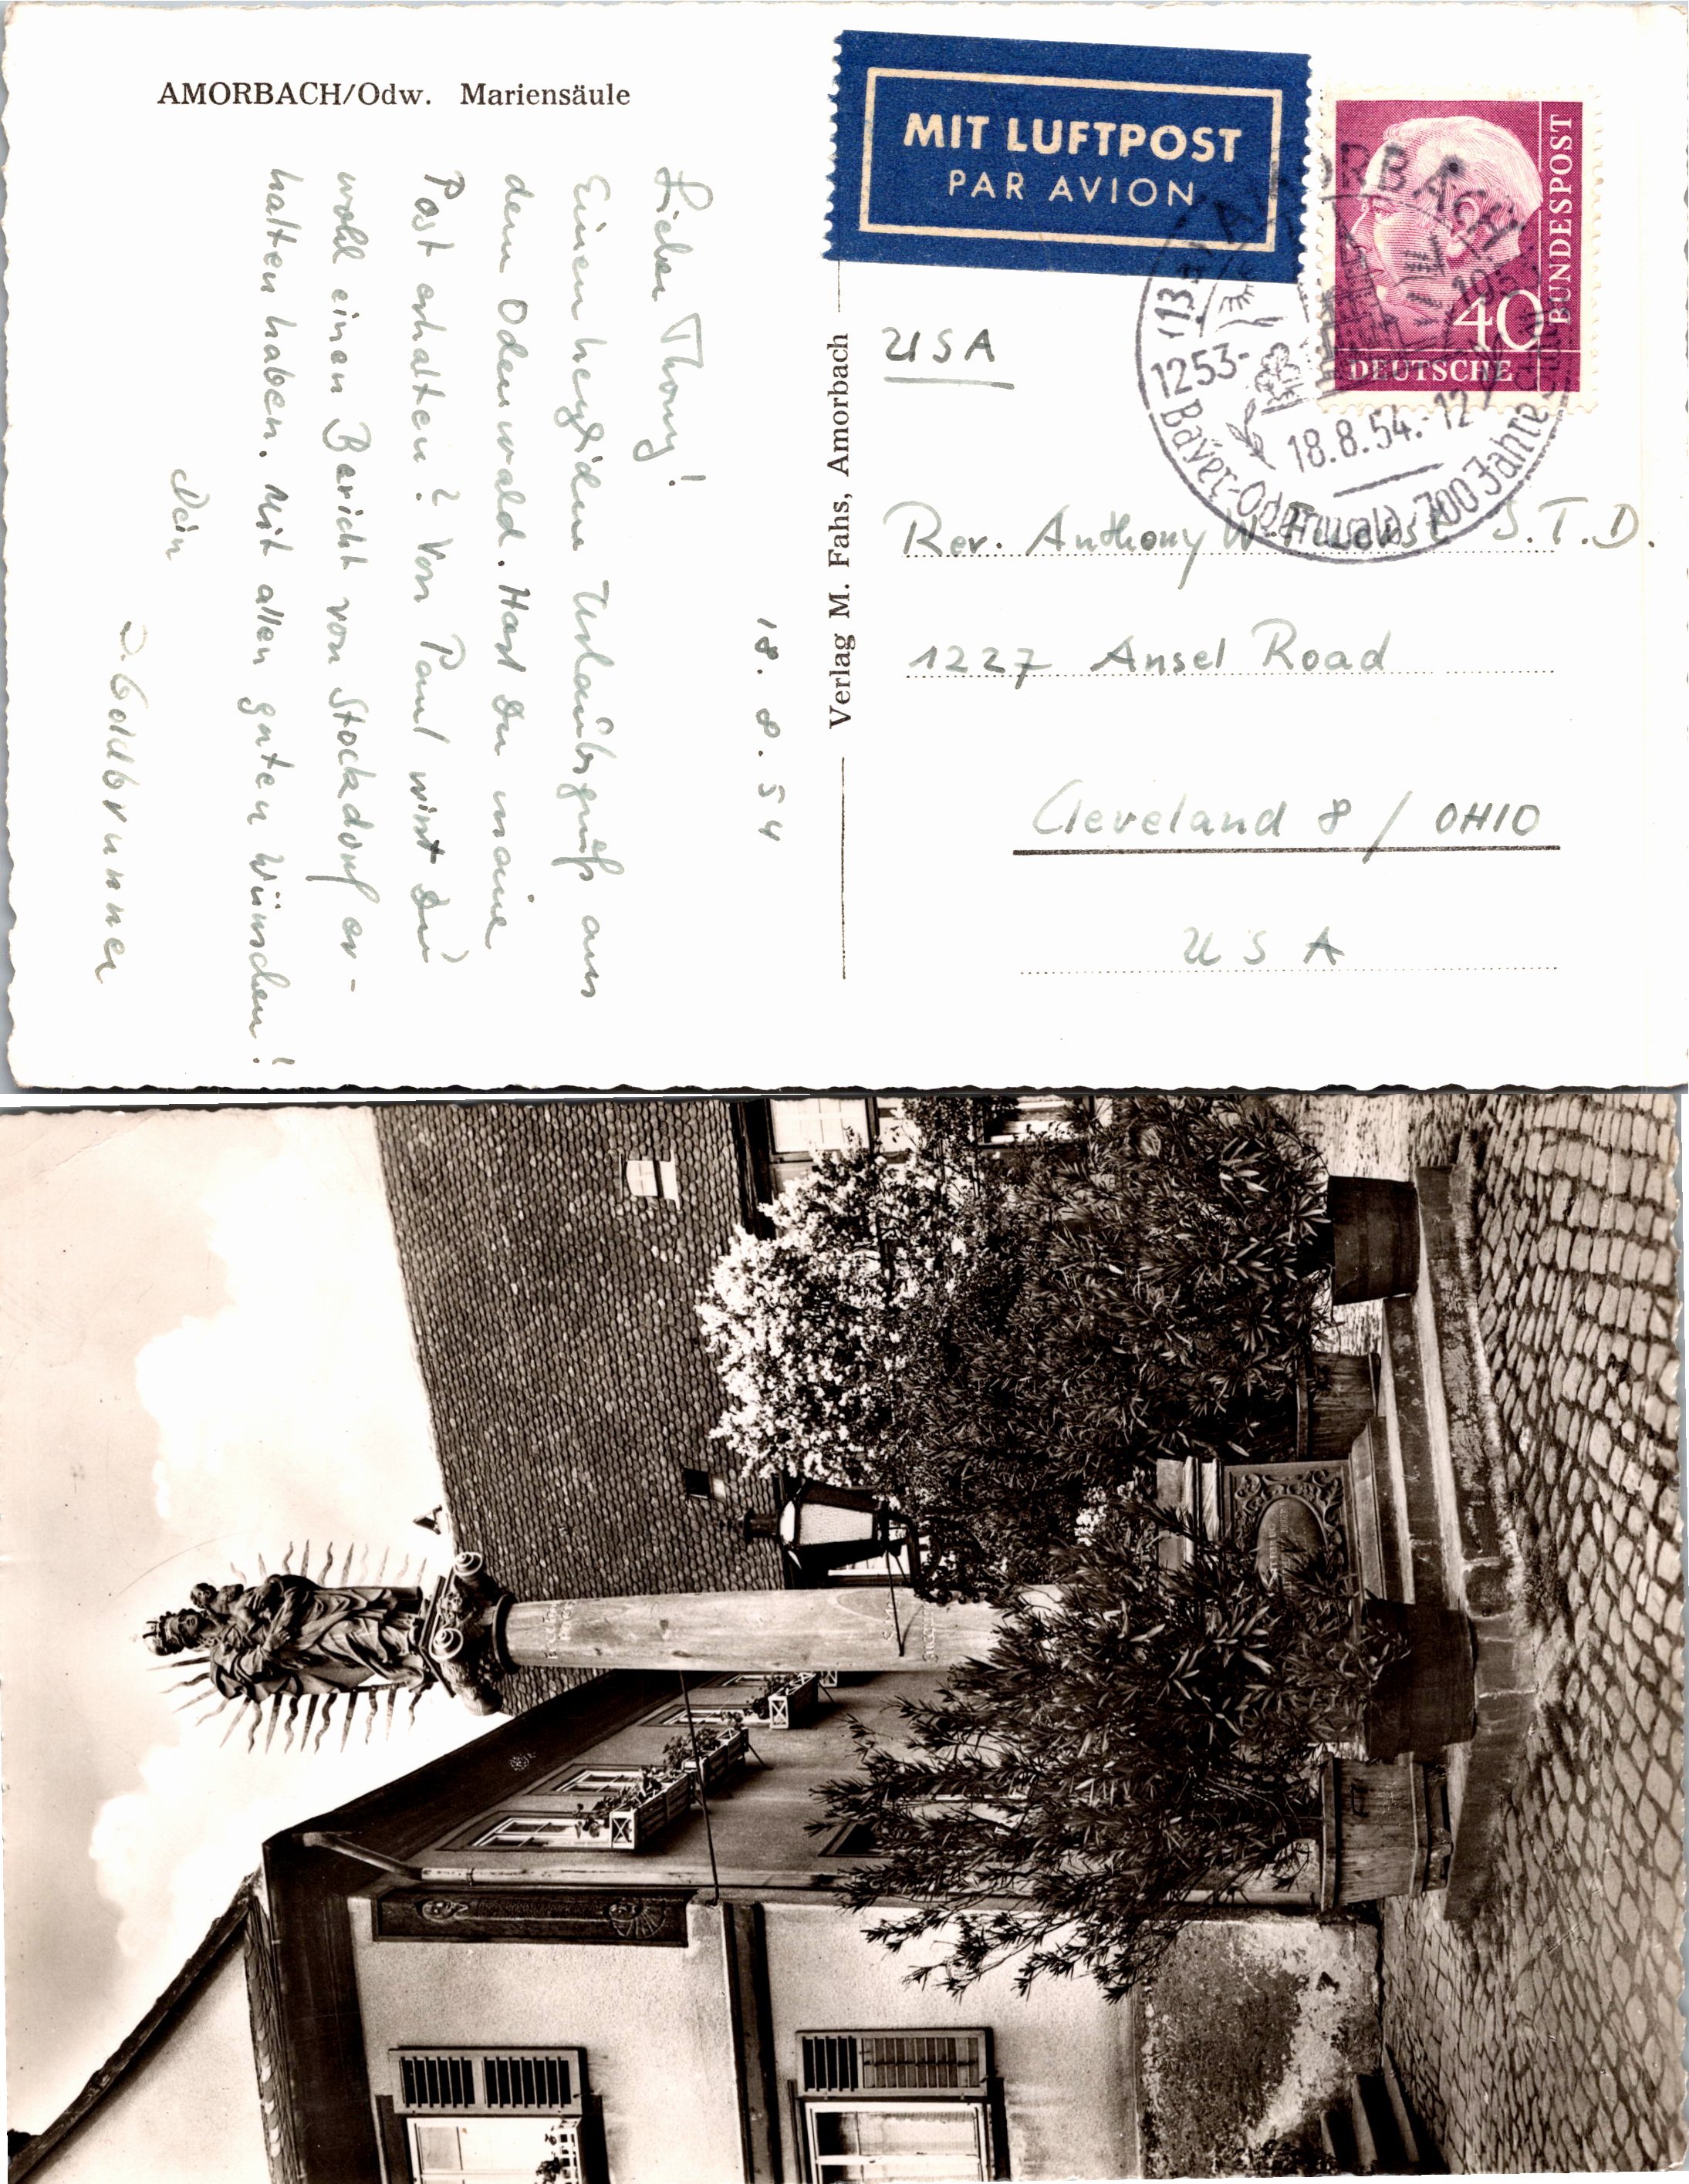 AMORBACH/Odw. Mariensäule
18.8.54
Lieber Thony!
Einen herzlichen Urlaubsgruß aus
dem Odenwald. Hast Du meine
Post erhalten? Von Paul wirst Du
wohl einen Bericht von Stockdorf er-
halten haben. Mit allen guten Wünschen!
Dein
J. Goldbrunner
Verlag M. Fahs, Amorbach
MIT LUFTPOST
PAR AVION
40
DEUTSCHE
BUNDESPOST
AMORBACH
1253-195
18.8.54.-12
Bayer-Odenwald 700 Jahre
USA
Rev. Anthony W. S.T.D.
1227 Ansel Road
Cleveland 8 / OHIO
USA